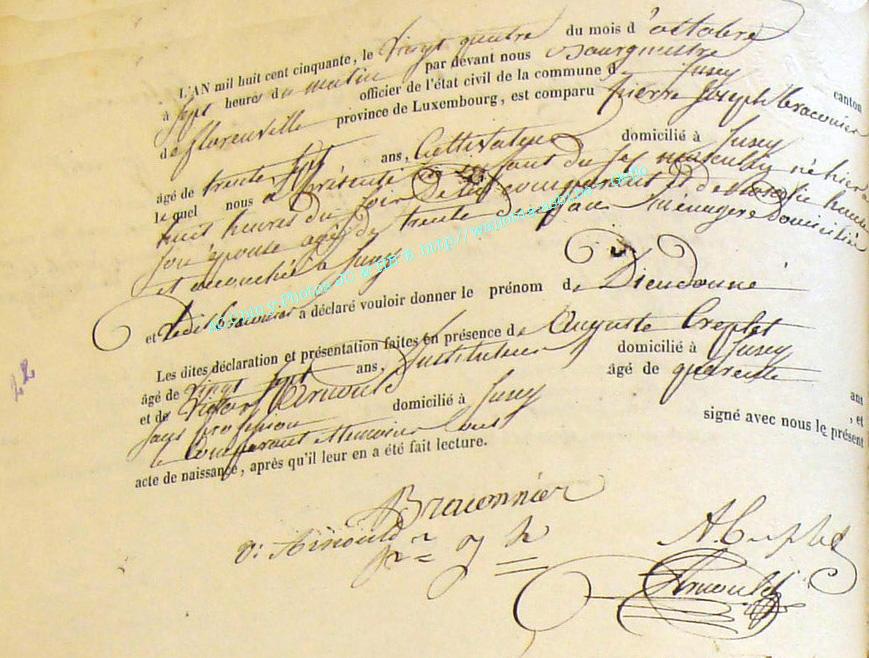 L'AN mil huit cent cinquante, le vingt quatre du mois d'octobre
à sept heures du matin par devant nous Bourgmestre
officier de l'état civil de la commune de Jusey canton
de florenville province de Luxembourg, est comparu Pierre Joseph Braconnier
âgé de trente sept ans, Cultivateur domicilié à Jusey
le quel nous a présenté un enfant du sexe masculin né hier à
huit heures du jour De lui comparant et de
son épouse agée de trente ans ménagere domiciliée
et accouchée à Jusey
et ledit Braconnier a déclaré vouloir donner le prénom de Dieudonné
Les dites déclaration et présentation faites en présence de Auguste Creplet
âgé de vingt sept ans, Instituteur domicilié à Jusey
et de Victor Arnould âgé de quarente ans
sans profession domicilié à Jusey , et
le Comparant et temoins ont signé avec nous le présent
acte de naissance, après qu'il leur en a été fait lecture.
Braconnier
V: Arnould A. Creplet
Arnould
22
http://wallonia-asbl